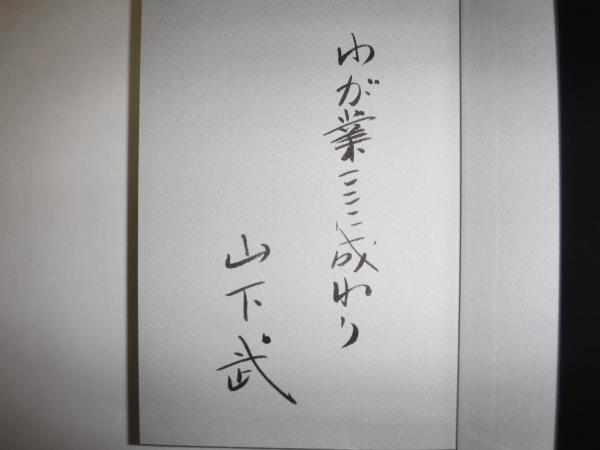 わが業ここに成れり
山下武